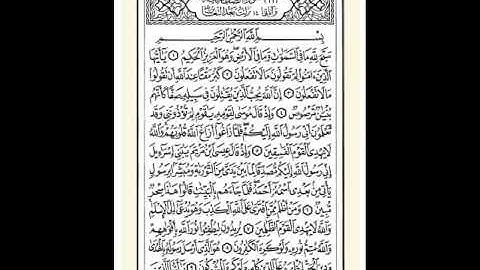 وآياتها ١٤ نزلت بعد التغابن
بِسْمِ اللَّهِ الرَّحْمَٰنِ الرَّحِيمِ
سَبَّحَ لِلَّهِ مَا فِي السَّمَٰوَٰتِ وَمَا فِي الْأَرْضِ وَهُوَ الْعَزِيزُ الْحَكِيمُ ١ يَٰٓأَيُّهَا
الَّذِينَ ءَامَنُوا لِمَ تَقُولُونَ مَا لَا تَفْعَلُونَ ٢ كَبُرَ مَقْتًا عِندَ اللَّهِ أَن تَقُولُوا
مَا لَا تَفْعَلُونَ ٣ إِنَّ اللَّهَ يُحِبُّ الَّذِينَ يُقَٰتِلُونَ فِي سَبِيلِهِ صَفًّا كَأَنَّهُم
بُنْيَٰنٌ مَّرْصُوصٌ ٤ وَإِذْ قَالَ مُوسَىٰ لِقَوْمِهِ يَٰقَوْمِ لِمَ تُؤْذُونَنِي وَقَد
تَّعْلَمُونَ أَنِّي رَسُولُ اللَّهِ إِلَيْكُمْ فَلَمَّا زَاغُوا أَزَاغَ اللَّهُ قُلُوبَهُمْ وَاللَّهُ
لَا يَهْدِي الْقَوْمَ الْفَٰسِقِينَ ٥ وَإِذْ قَالَ عِيسَى ابْنُ مَرْيَمَ يَٰبَنِي إِسْرَٰٓءِيلَ
إِنِّي رَسُولُ اللَّهِ إِلَيْكُم مُّصَدِّقًا لِّمَا بَيْنَ يَدَيَّ مِنَ التَّوْرَىٰةِ وَمُبَشِّرًا بِرَسُولٍ
يَأْتِي مِن بَعْدِي اسْمُهُ أَحْمَدُ فَلَمَّا جَاءَهُم بِالْبَيِّنَٰتِ قَالُوا هَٰذَا سِحْرٌ
مُّبِينٌ ٦ وَمَنْ أَظْلَمُ مِمَّنِ افْتَرَىٰ عَلَى اللَّهِ الْكَذِبَ وَهُوَ يُدْعَىٰ إِلَى الْإِسْلَٰمِ
وَاللَّهُ لَا يَهْدِي الْقَوْمَ الظَّٰلِمِينَ ٧ يُرِيدُونَ لِيُطْفِـُٔوا نُورَ اللَّهِ بِأَفْوَٰهِهِمْ
وَاللَّهُ مُتِمُّ نُورِهِ وَلَوْ كَرِهَ الْكَٰفِرُونَ ٨ هُوَ الَّذِي أَرْسَلَ رَسُولَهُ بِالْهُدَىٰ
وَدِينِ الْحَقِّ لِيُظْهِرَهُ عَلَى الدِّينِ كُلِّهِ وَلَوْ كَرِهَ الْمُشْرِكُونَ ٩ يَٰٓأَيُّهَا الَّذِينَ